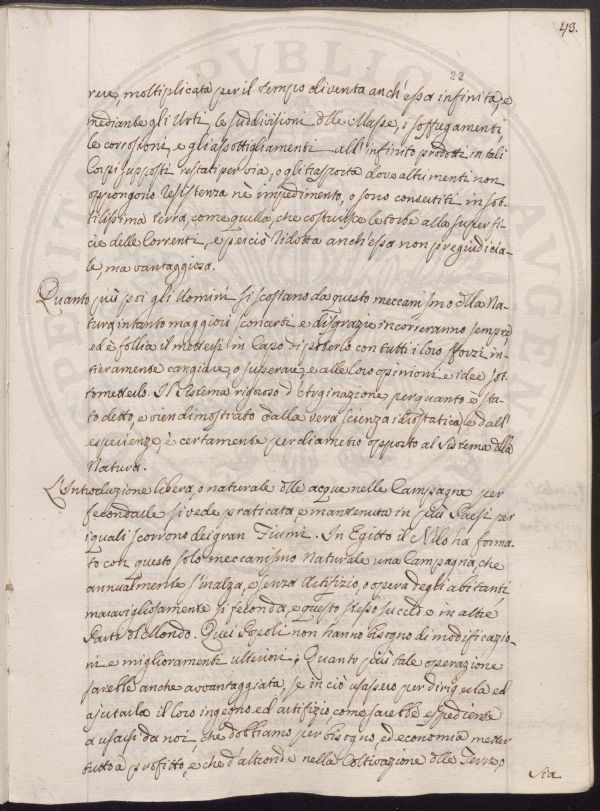 43.
22
rere, moltiplicata per il tempo diventa anch'essa infinita, e
mediante gli Urti, le suddivisioni dlle Masse, i soffregamenti,
le corrosioni, e gli assottigliamenti all'infinito prodotti in tali
Corpi supposti restati per via, o gli trasporta dove altrimenti non
oppongono resistenza nè impedimento, o sono convertiti in sot-
tilissima terra, come quella, che costituisce le torbe alla superfi-
cie delle Correnti, e perciò ridotta anch'essa non pregiudicia-
le, ma vantaggiosa.
Quanto più poi gli Uomini si scostano da questo meccanismo dlla Na-
tura, intanto maggiori sconcerti e disgrazie incorreranno sempre,
ed è follia il mettersi in Capo di poterlo con tutti i loro sforzi in-
tieramente cangiare, o superare, e alle loro opinioni e idee sot-
tometterlo. Il Sistema rigoroso d'Arginazione per quanto è sta-
to detto, e vien dimostrato dalla vera scienza idrostatica, e dall'
esperienze, è certamente per diametro opposto al Sistema dlla
Natura.
L'Introduzione libera, o naturale dlle acque nelle Campagne per
fecondarle si vede praticata e mantenuta in più Paesi per
i quali scorrono dei gran Fiumi. In Egitto il Nilo ha forma-
to con questo solo meccanismo Naturale una Campagna, che
annualmente s'inalza, e senza Artifizio, o opera degli abitanti
maravigliosamente si feconda, e questo stesso succede in altre
Parti dl Mondo. Quei Popoli non hanno bisogno di modificazio-
ni e miglioramenti ulteriori; Quanto più tale operazione
sarebbe anche avvantaggiata, se in ciò usassero per dirigerla ed
ajutarla il loro ingegno ed artifizio, come sarebbe espediente
a usarsi da noi, che dobbiamo per bisogno, ed economia metter
tutto a profitto, e che d'altronde nella Coltivazione dlle Terre,
sia